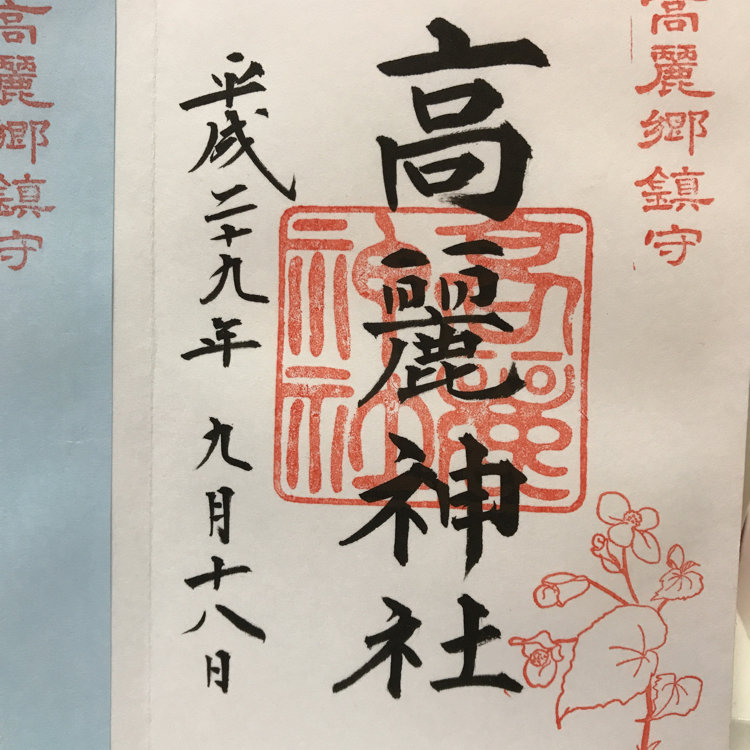 高麗郷鎮守
高麗神社
平成二十九年 九月十八日
高麗神社
高麗郷鎮守